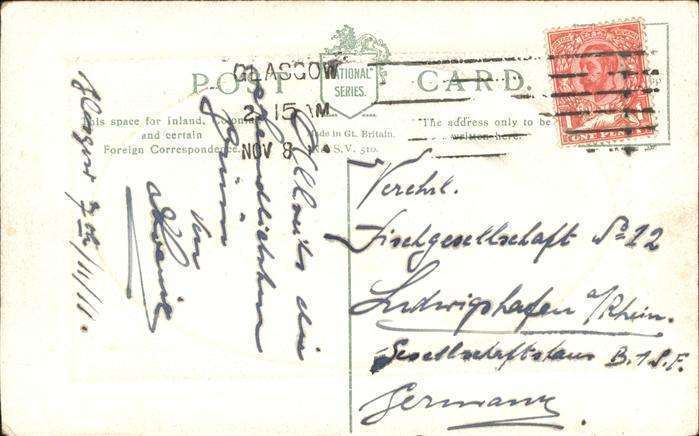 POST CARD.
"NATIONAL"
SERIES.
GLASGOW
2 15 AM
NOV 8
This space for Inland, Colonial
and certain
Foreign Correspondence
Made in Gt. Britain.
S.V. 510.
The address only to be
written here.
ONE PENNY
Glasgow 7 /11/11.
Allseits die
herzlichsten
Grüsse
von
Verehrl.
Tischgesellschaft No 12
Ludwigshafen a/Rhein.
Gesellschaftshaus B.A.S.F.
Germany